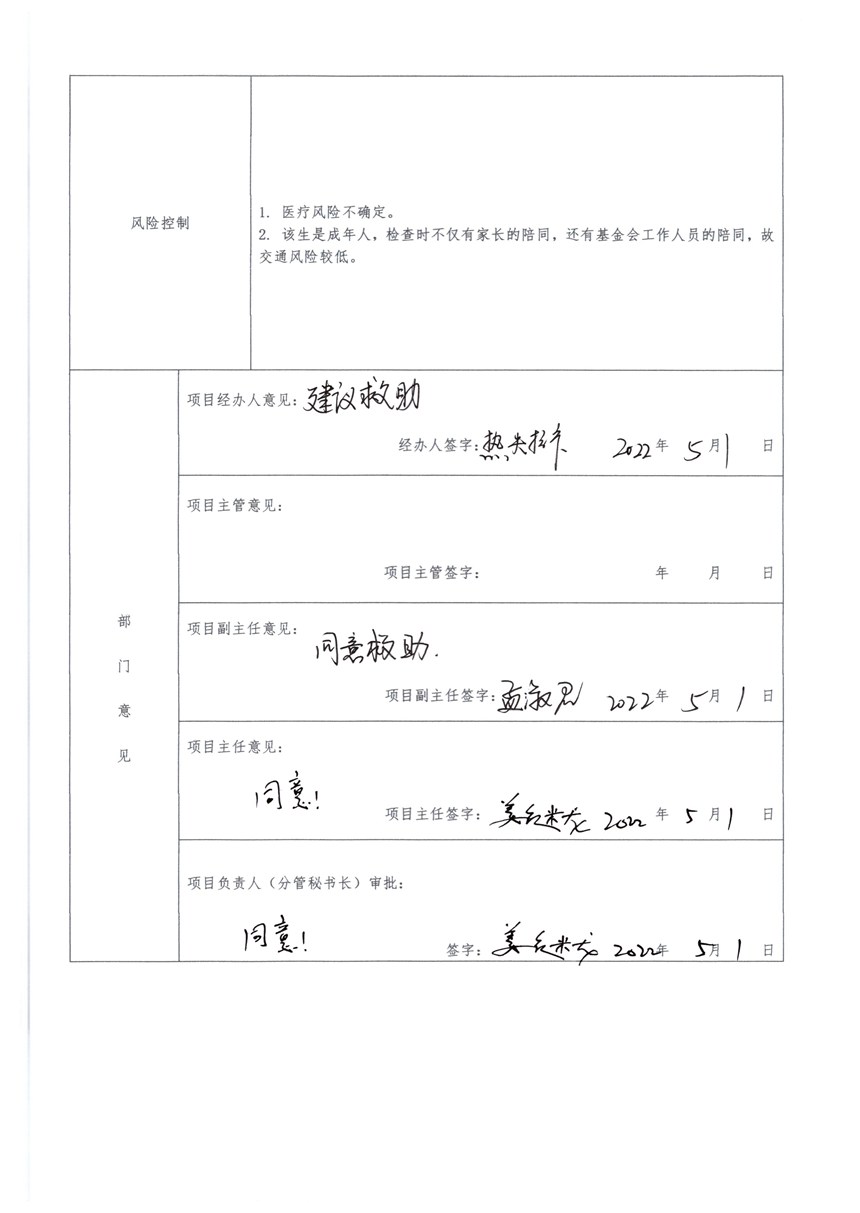 风险控制
1. 医疗风险不确定。
2. 该生是成年人，检查时不仅有家长的陪同，还有基金会工作人员的陪同，故
交通风险较低。
部门意见
项目经办人意见：建议救助
经办人签字： 2022年 5月1日
项目主管意见：
项目主管签字： 年 月 日
项目副主任意见：同意救助.
项目副主任签字：孟淑君 2022年 5月1日
项目主任意见：
同意!
项目主任签字： 2022年 5月1日
项目负责人（分管秘书长）审批：
同意!
签字： 2022年 5月1日